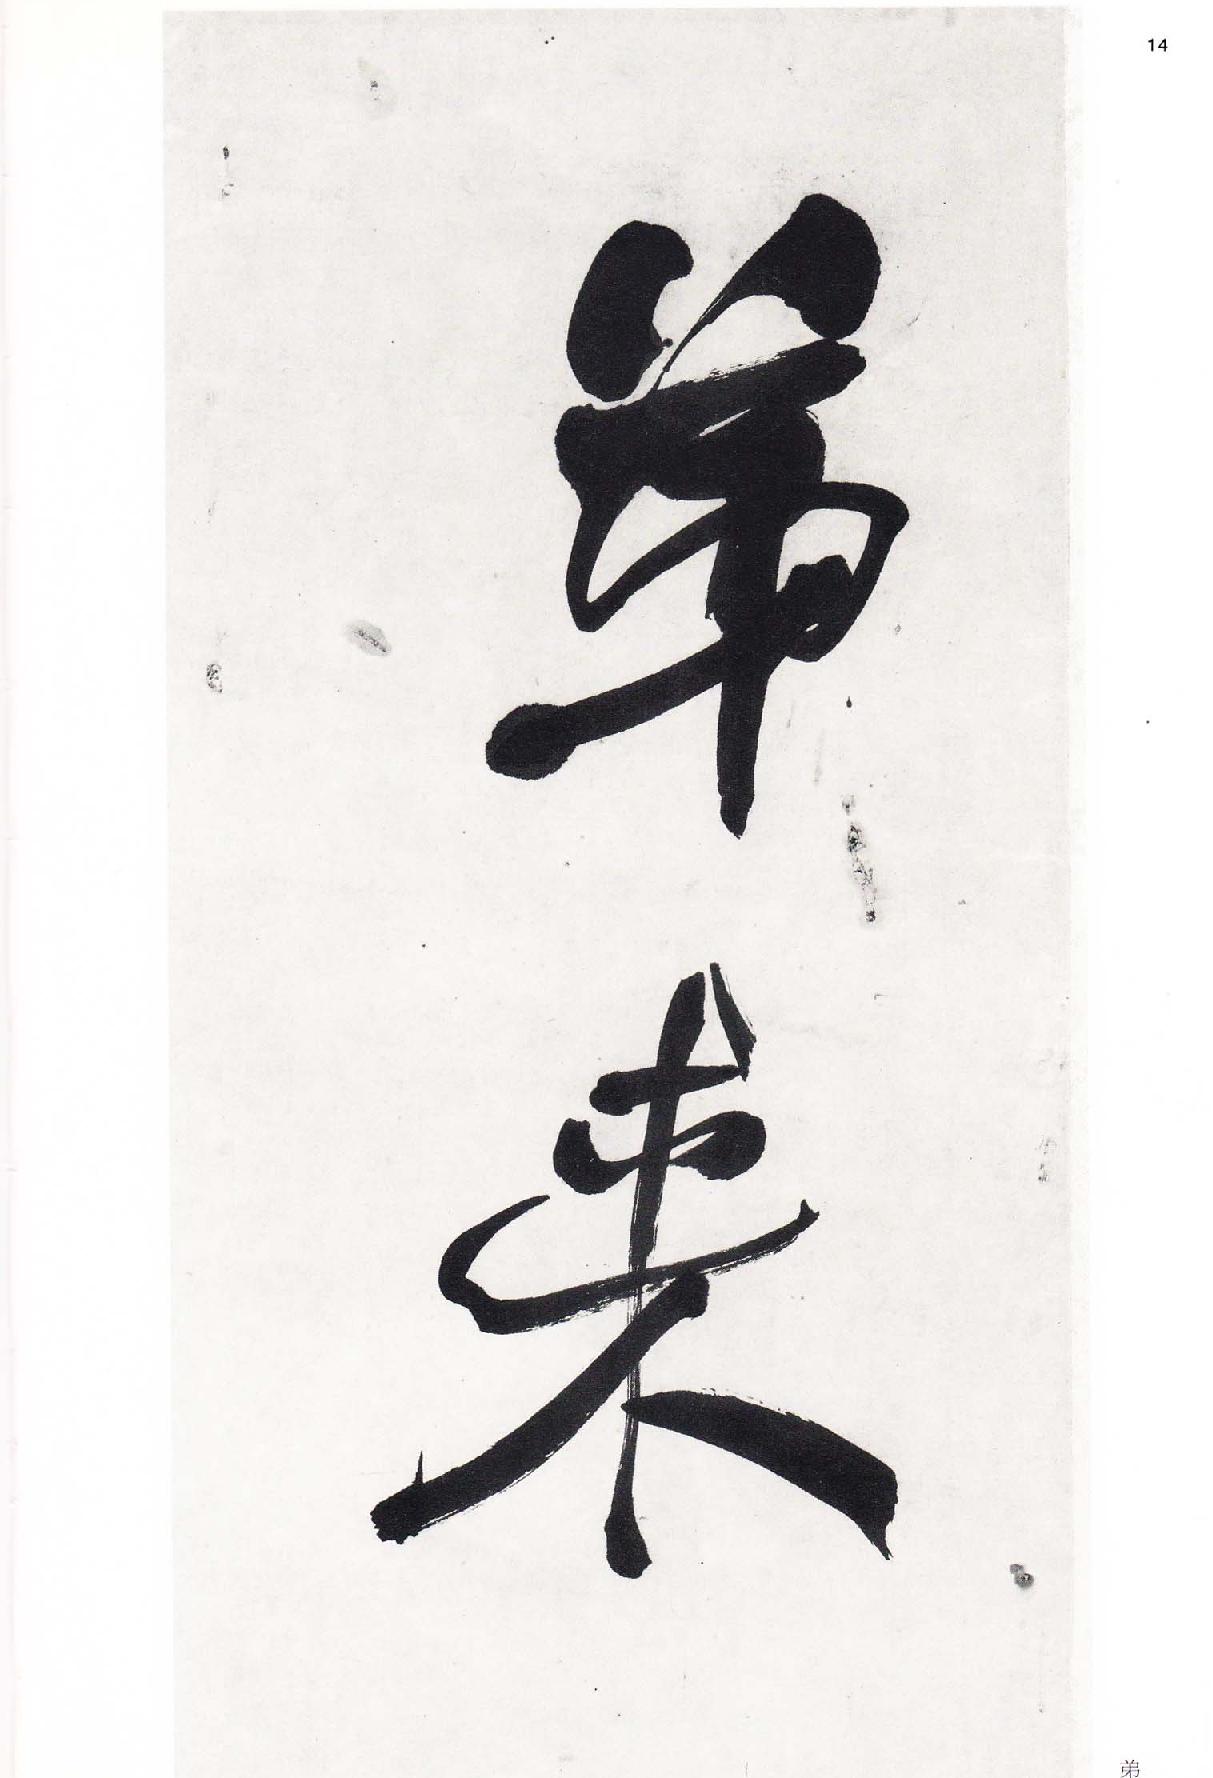 14
弟来
弟